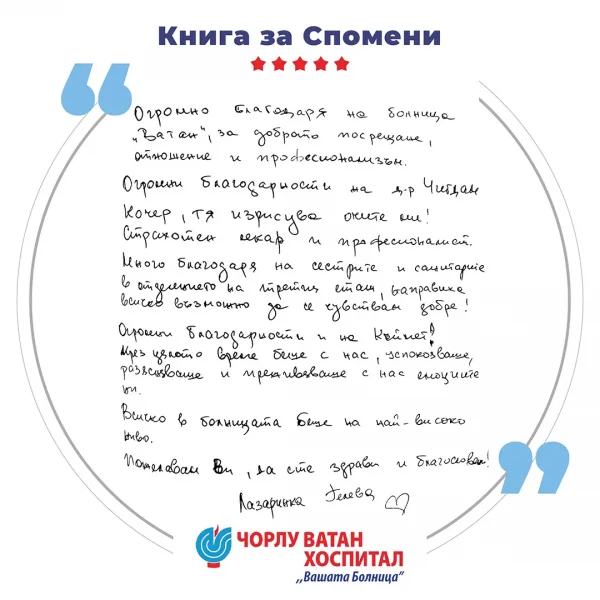 Книга за Спомени
Огромно благодаря на болница
„Ватан", за доброто посрещане,
отношение и професионализъм.
Огромни благодарности на д-р Чигдам
Кочер, тя изрисува очите ми!
Страхотен лекар и професионалист.
Много благодаря на сестрите и санитарите
в отделението на третия етаж, направиха
всичко възможно да се чувствам добре!
Огромни благодарности и на
През цялото време беше с нас, успокояваше,
разясняваше и преживяваше с нас емоциите
ни.
Всичко в болницата беше на най-високо
ниво.
Пожелавам Ви, да сте здрави и благословени!
Лазаринка Гелева
ЧОРЛУ ВАТАН
ХОСПИТАЛ
„Вашата Болница"